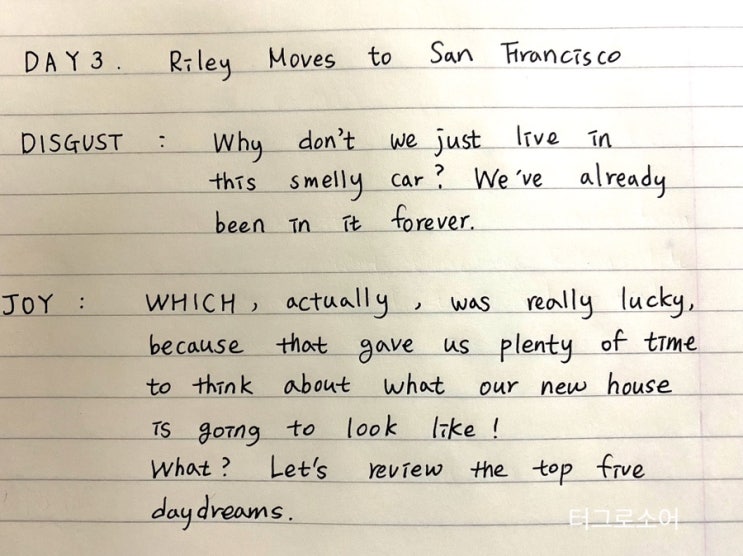 DAY 3. Riley Moves to San Francisco
DISGUST : Why don't we just live in
this smelly car? We've already
been in it forever.
JOY : WHICH, actually, was really lucky,
because that gave us plenty of time
to think about what our new house
is going to look like!
What? Let's review the top five
daydreams.
터그로소어